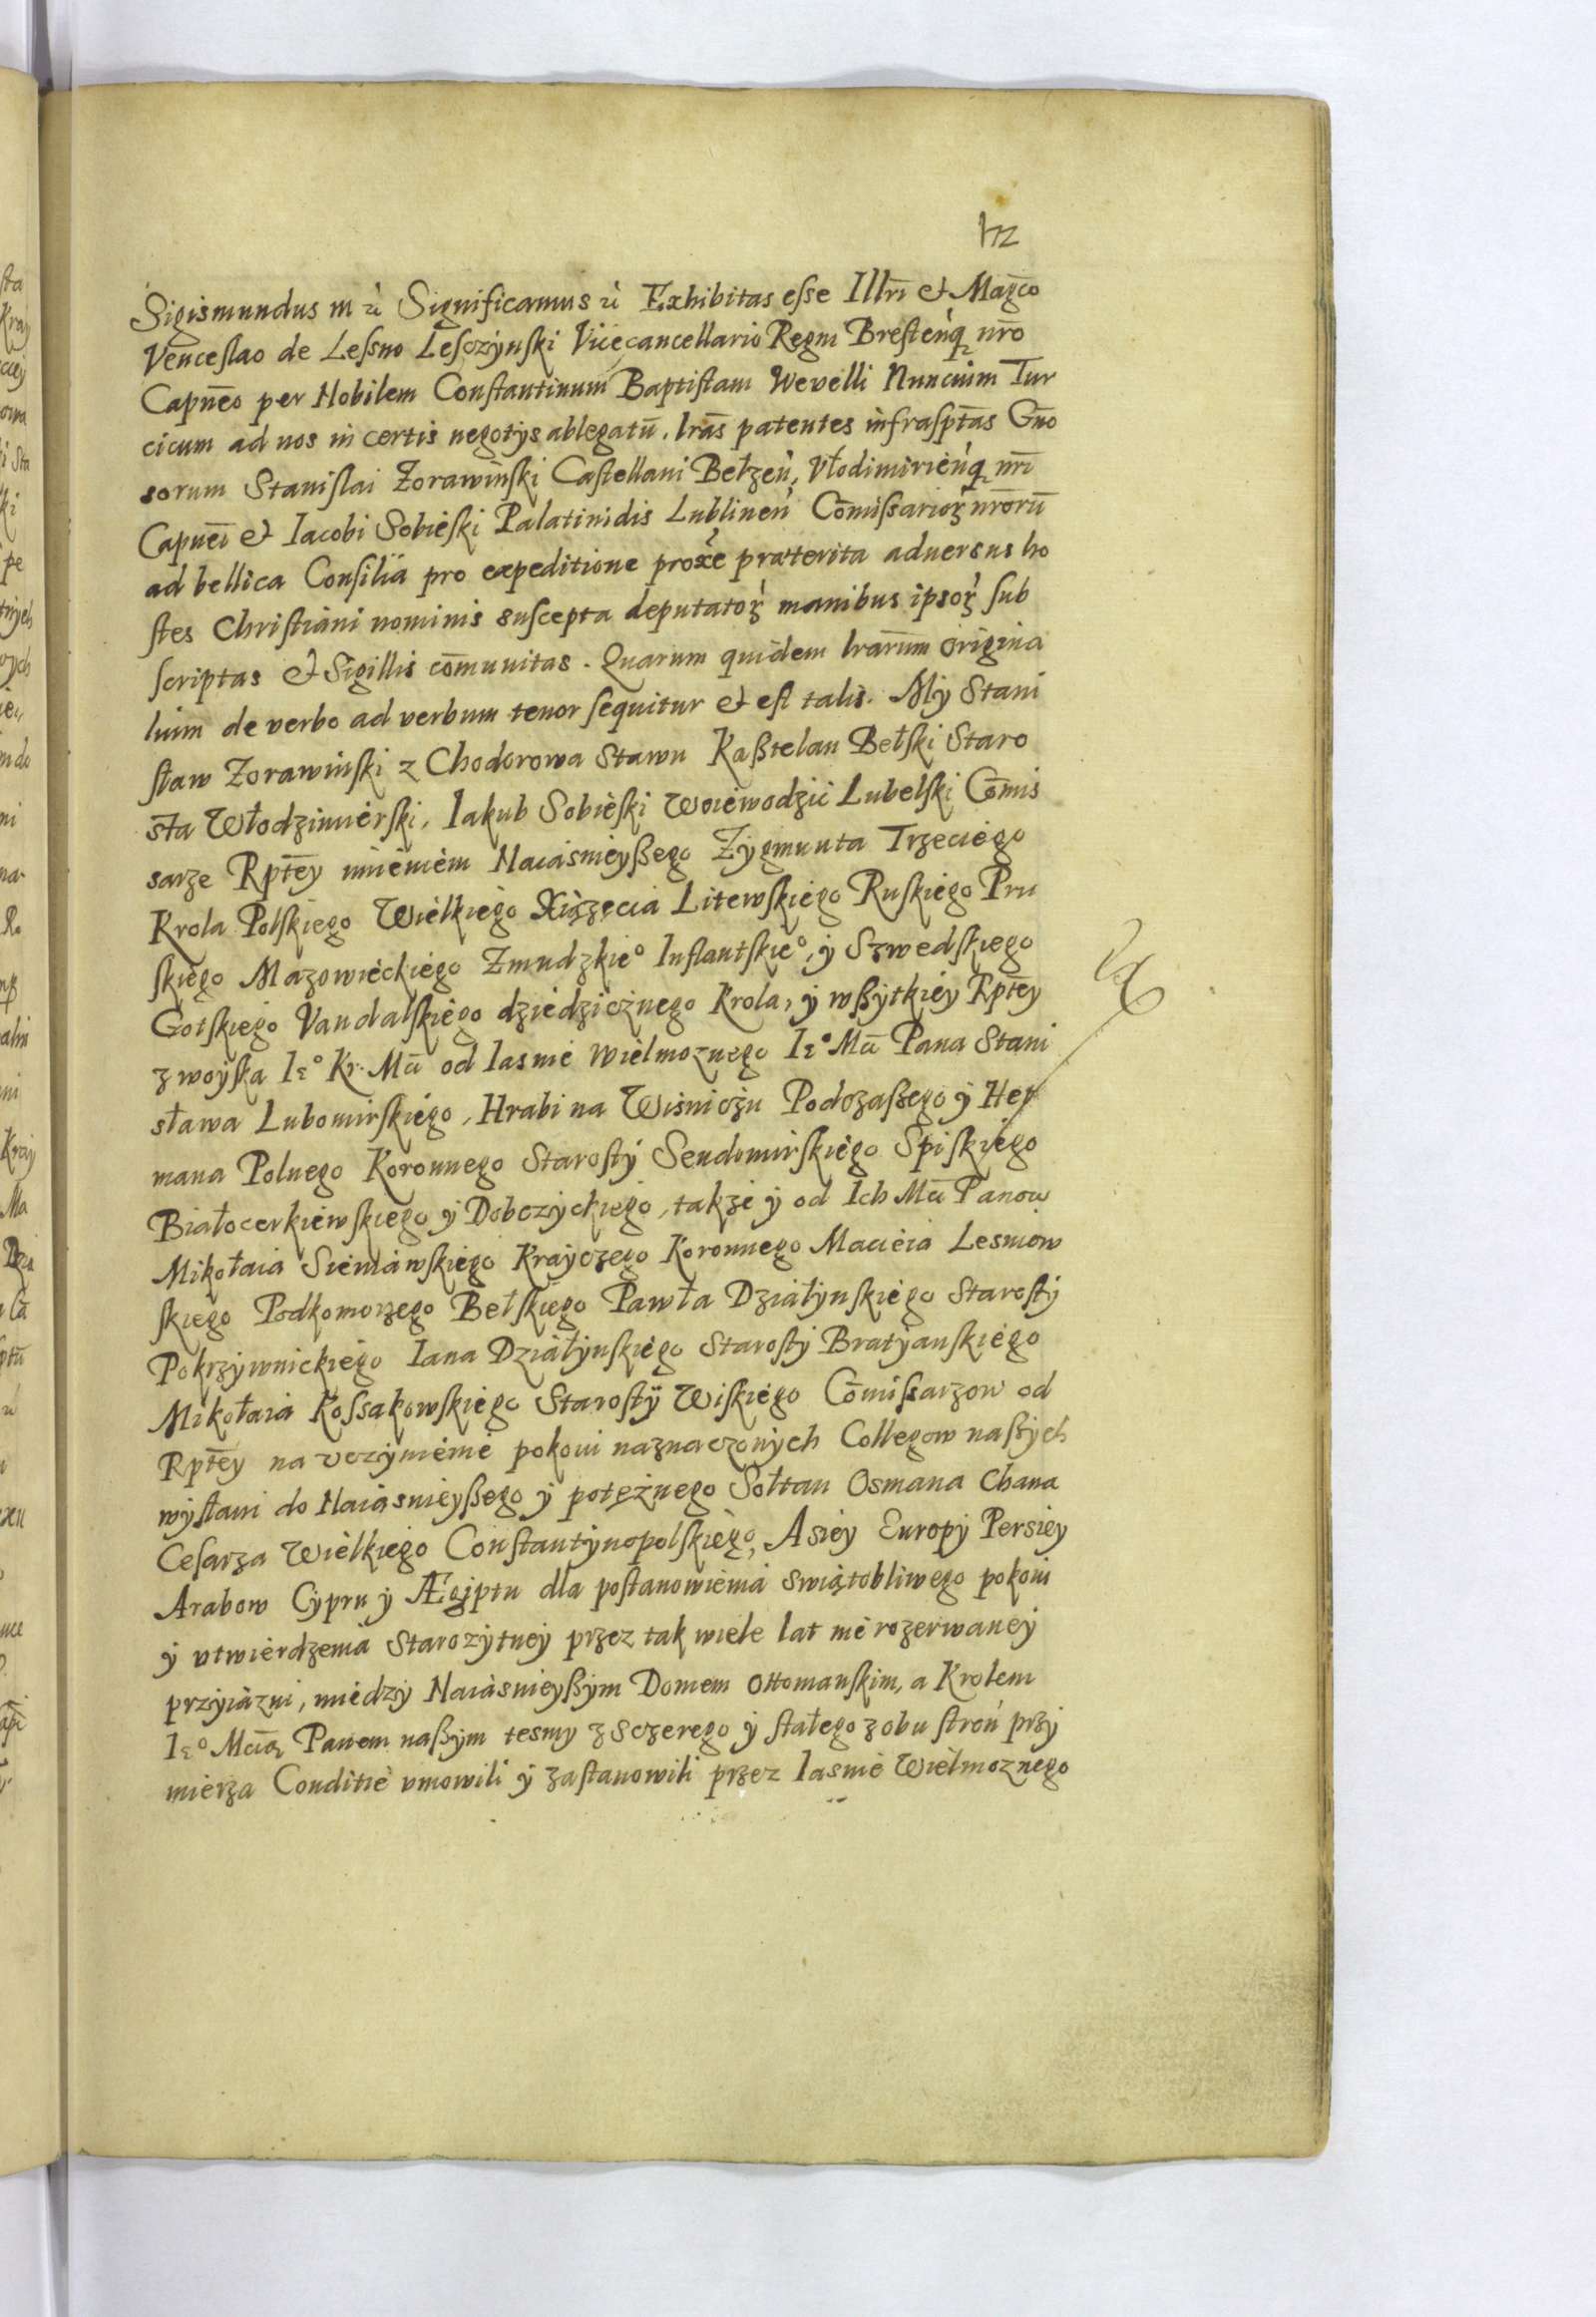 Sigismundus m ꝛc̀ Significamus ꝛc̀ Exhibitas eſse Illr̄i et Mag̅co
Venceslao de Leſsno Leſczÿnſki Vicecancellario Regni Breſten̉q̨ nr̄o
Capn̄eo per Nobilem Conſtantinum Baptiſtam Wevelli Nuncium Tur
cicum ad nos in certis negotÿs ablegatū. lrās patentes infraſpt̄as Gn̄o
sorum Staniſlai Zorawinſki Caſtellani Bełzen̉, Vłodimirien̉q̨ nr̄i
Capn̄ei et Iacobi Sobieſki Palatinidis Lublinen̉ Com̄iſsarioꝝ nr̄orū
ad bellica Conſilia pro expeditione prox̄e præterita aduersus ho
ſtes Chriſtiani nominis suſcepta deputatoꝝ manibus ipsoꝝ ſub
ſcriptas et Sigillis com̄unitas. Quarum quidem lrar̄um origina
lium de verbo ad verbum tenor ſequitur et eſt talis. Mÿ Stani
ſław Zorawinſki z Chodorowa Stawu Kaßtelan Bełſki Staro
sta Włodzimierſki, Iakub Sobieſki Woiewodzic Lubelſki Com̄is
sarze Rpt̄ey imieniem Naiasnieyßego Zÿgmunta Trzeciego
Krola Polſkiego Wielkiego Xiążęcia Litewſkiego Ruſkiego Pru
ſkiego Mazowieckiego Zmudzkie° Inflantſkie°, ÿ Szwedſkiego
Gotſkiego Vandalſkiego dziedzicznego Krola, ÿ wßÿtkiey Rpt̄ey
z woÿſka Ie° Kr. Mc̄i od Iasnie Wielmoznego Ie° Mc̄i Pana Stani
sława Lubomirſkiego, Hrabi na Wisniczu Podczaßego ÿ Het
mana Polnego Koronnego Staroſtÿ Sendomirſkiego Spiſkiego
Białocerkiewſkiego ÿ Dobczyckiego, takze ÿ od Ich Mc̄i Panow
Mikołaia Sieniawſkiego Krayczego Koronnego Macieia Lesniow
ſkiego Podkomorzego Bełſkiego Pawła Działynſkiego Staroſtÿ
Pokrzÿwnickiego Iana Działynſkiego Staroſtÿ Bratÿanſkiego
Mikołaia Koſsakowſkiego Staroſtÿ Wiſkiego Com̄iſsarzow od
Rpt̄ey na vczÿnienie pokoiu naznaczonÿch Collegow naßÿch
wÿſłani do Naiasnieyßego ÿ potężnego Sołtan Osmana Chana
Ceſarza Wielkiego Conſtantÿnopolſkiego, Asiey Europÿ Persiey
Arabow Cÿpru ÿ Ægiptu dla poſtanowienia swiątobliwego pokoiu
ÿ vtwierdzenia Starozÿtney przez tak wiele lat nie rozerwaney
przÿiazni, miedzÿ Naiasnieyßÿm Domem Ottomanſkim, a Krolem
Ie° Mc̄ią Panem naßÿm tesmy z szczerego ÿ ſtałego z obu ſtron przÿ
mierza Conditie vmowili ÿ zaſtanowili przez Iasnie Wielmoznego